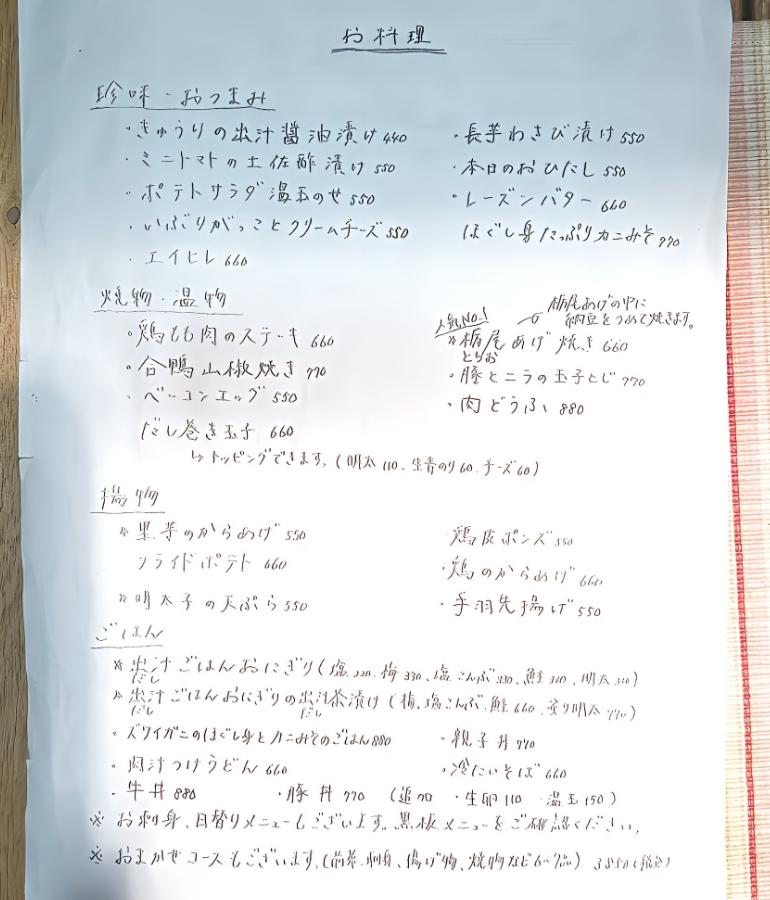 お料理
珍味・おつまみ
・きゅうりの出汁醤油漬け 440
・ミニトマトの土佐酢漬け 550
・ポテトサラダ温玉のせ 550
・いぶりがっことクリームチーズ 550
・エイヒレ 660
・長芋わさび漬け 550
・本日のおひたし 550
・レーズンバター 660
ほぐし身たっぷりカニみそ 770
焼物・温物
・鶏もも肉のステーキ 660
・合鴨山椒焼き 770
・ベーコンエッグ 550
だし巻き玉子 660
↳トッピングできます。(明太 110、生青のり 60、チーズ 60)
栃尾あげの中に
納豆をつめて焼きます。
人気No.1
※栃尾あげ焼き 660
とちお
・豚とニラの玉子とじ 770
・肉どうふ 880
揚物
※里芋のからあげ 550
フライドポテト 660
※明太子の天ぷら 550
・鶏皮ポンズ 550
・鶏のからあげ 660
・手羽先揚げ 550
ごはん
※出汁ごはんおにぎり(塩 220、梅 330、塩こんぶ 330、鮭、明太)
だし
※出汁ごはんおにぎりの出汁茶漬け(梅、塩こんぶ、鮭 660、炙り明太 770)
だし だし
・ズワイガニのほぐし身とカニみそのごはん 880
・親子丼 770
・肉汁つけうどん 660
・冷たいそば 660
・牛丼 880 ・豚丼 770 (追 ・生卵 110 ・温玉 150)
※お刺身、日替りメニューもございます。黒板メニューをご確認ください。
※おまかせコースもございます。(前菜、刺身、揚げ物、焼物など6〜7品) 3850(税込)